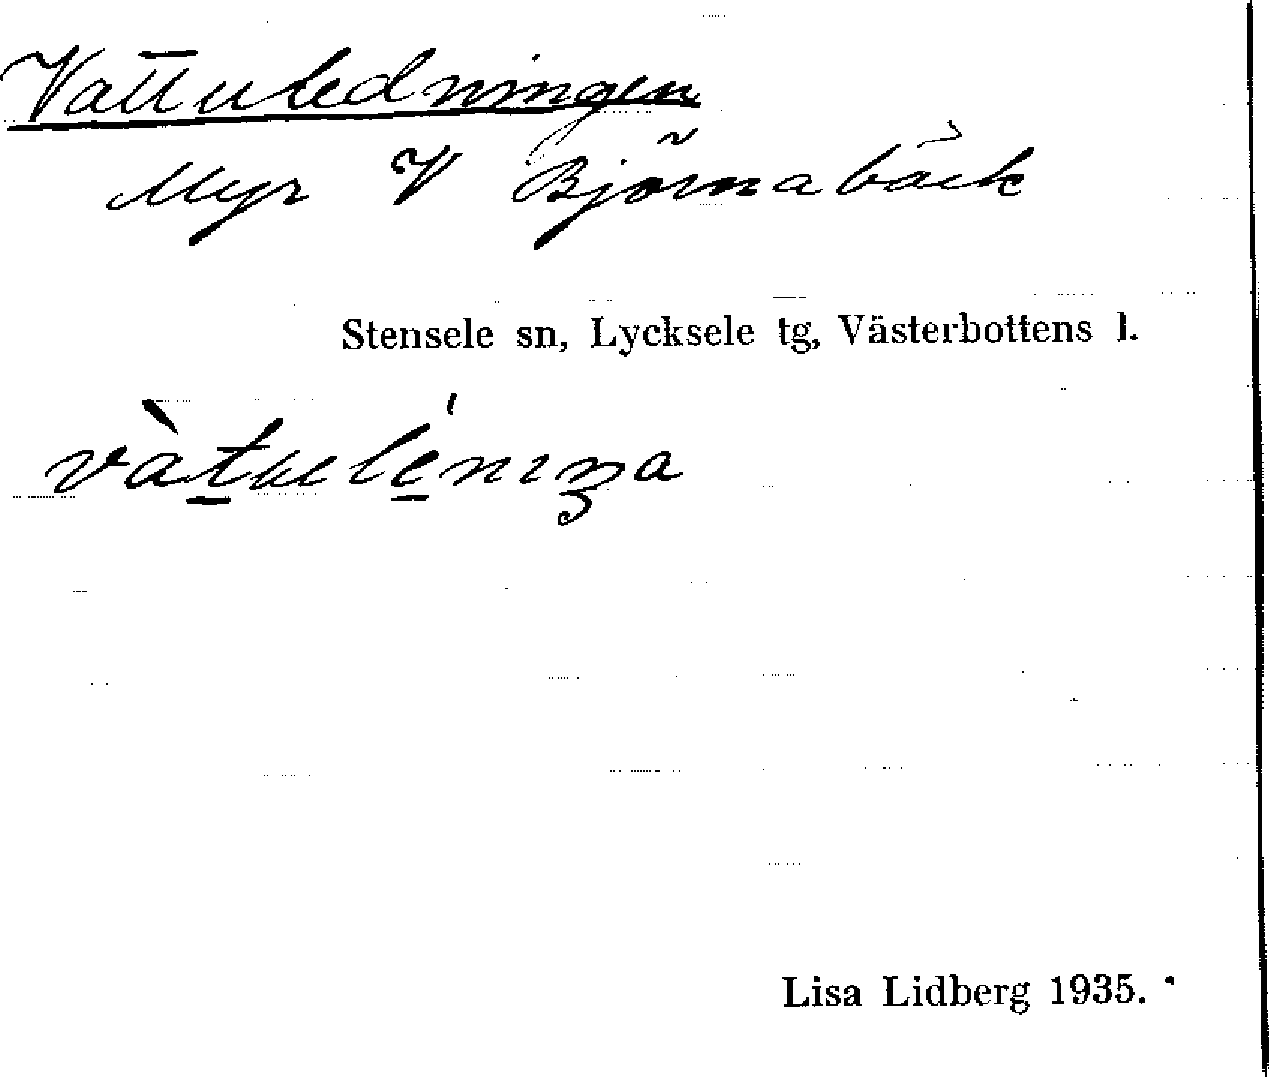 Vattuledningen
Myr V Björnabäck
Stensele sn, Lycksele tg, Västerbottens l.
Lisa Lidberg 1935.